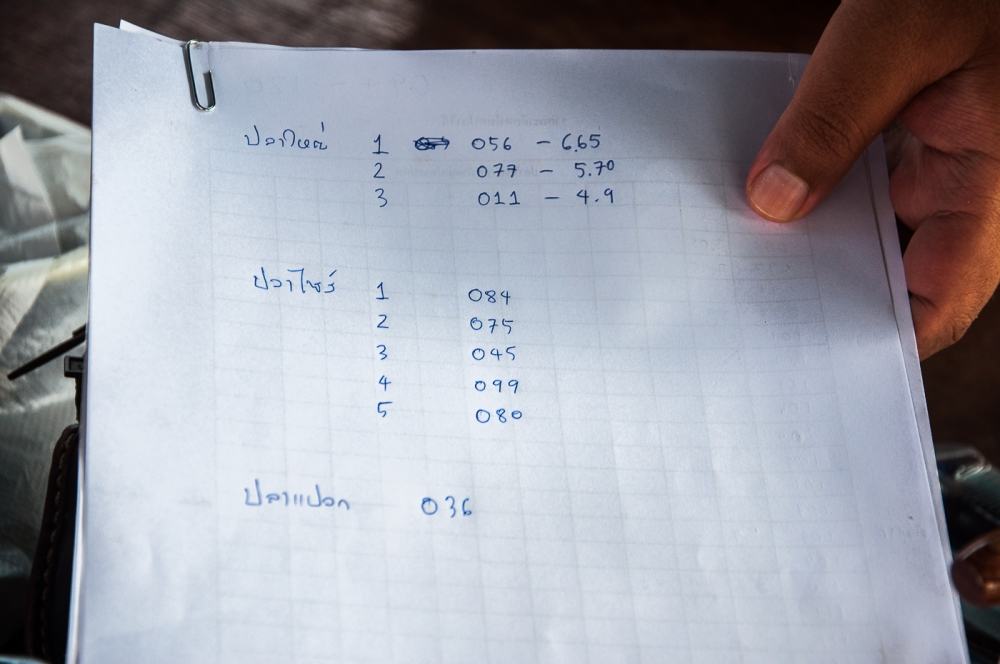 ปลาใหญ่ 1 056 - 6.65
2 077 - 5.70
3 011 - 4.9
ปลาไซร์ 1 084
2 075
3 045
4 099
5 080
ปลาแปลก 036